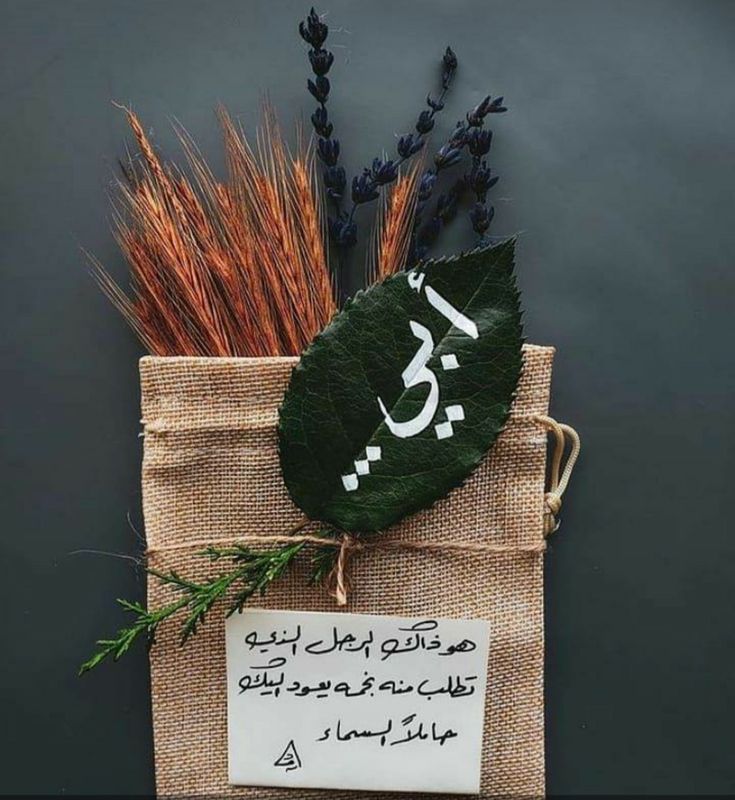 أبي
هو ذاك الرجل الذي
تطلب منه نجمه يعود اليك
حاملاً السماء